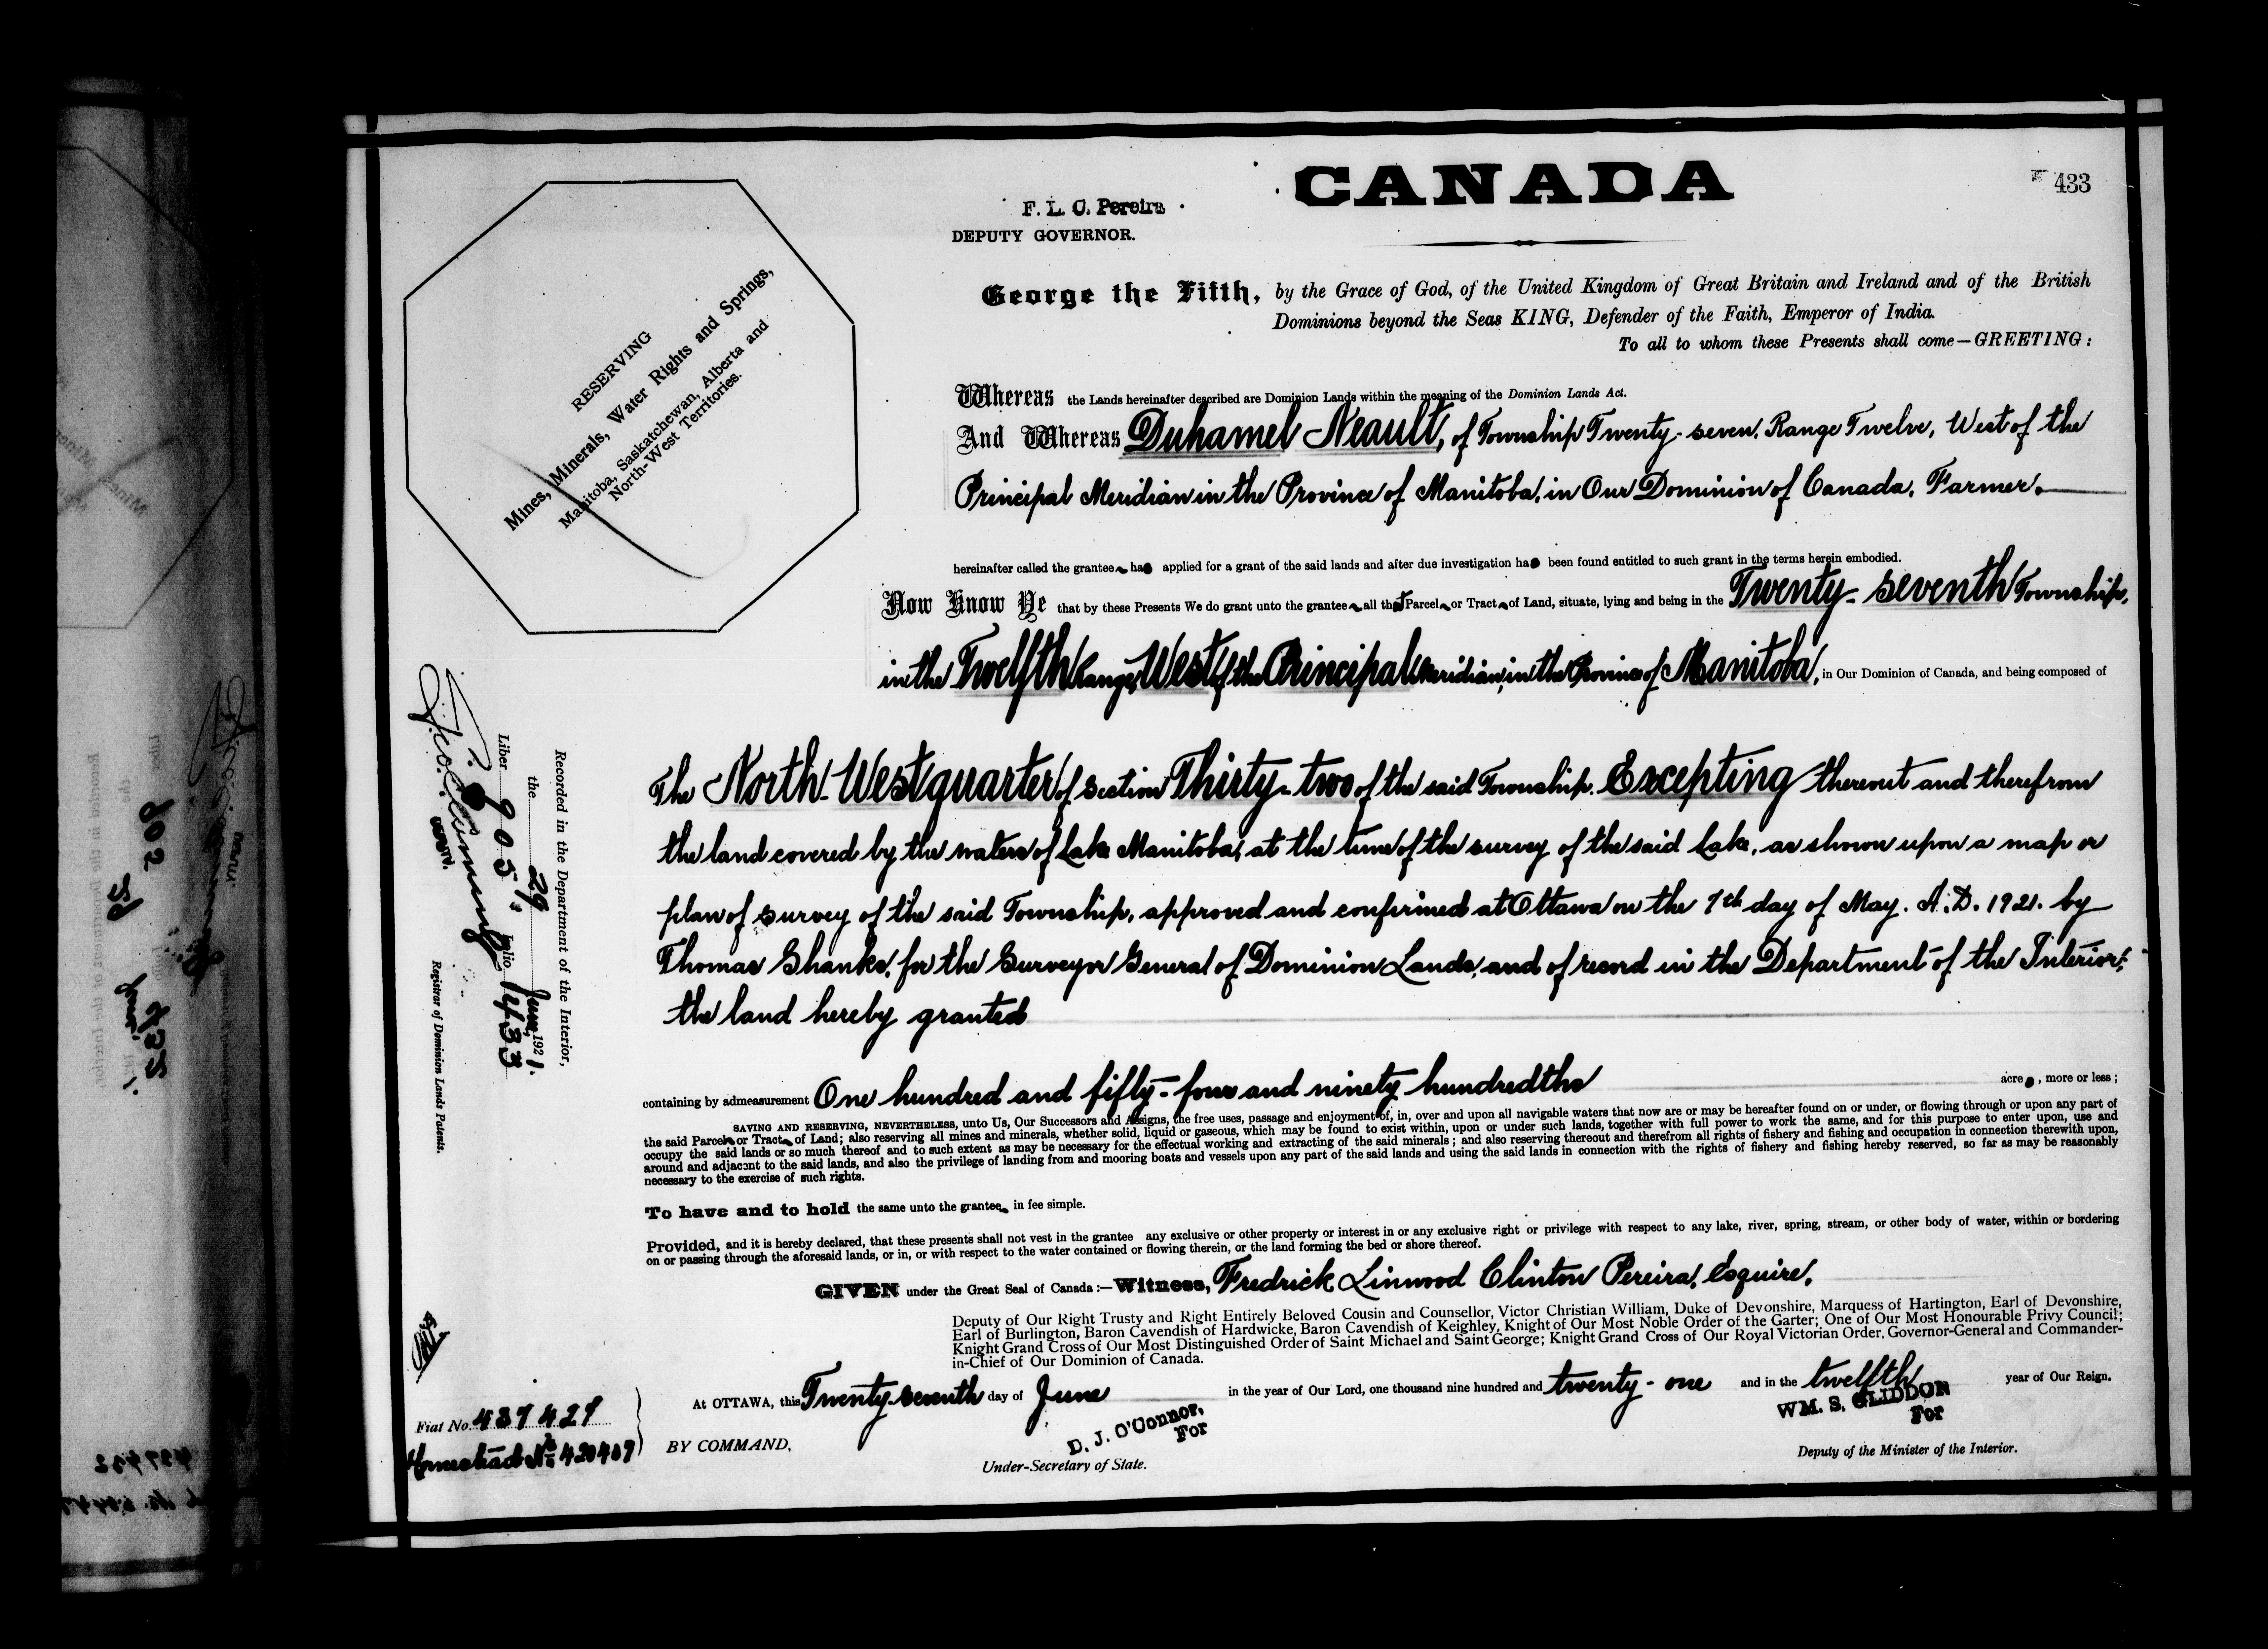 CANADA
433
F. L. C. Pereira
DEPUTY GOVERNOR.
George the Fifth, by the Grace of God, of the United Kingdom of Great Britain and Ireland and of the British
Dominions beyond the Seas KING, Defender of the Faith, Emperor of India.
To all to whom these Presents shall come—GREETING:
RESERVING
Mines, Minerals, Water Rights and Springs,
Manitoba, Saskatchewan, Alberta and
North-West Territories.
Whereas the Lands hereinafter described are Dominion Lands within the meaning of the Dominion Lands Act.
And Whereas Duhamel Neault, of Township Twenty-seven, Range Twelve, West of the
Principal Meridian in the Province of Manitoba, in Our Dominion of Canada, Farmer.
hereinafter called the grantee has applied for a grant of the said lands and after due investigation has been found entitled to such grant in the terms herein embodied.
Now Know Ye that by these Presents We do grant unto the grantee all that Parcel or Tract of Land, situate, lying and being in the Twenty-seventh Township,
in the Twelfth Range, West of the Principal Meridian, in the Province of Manitoba, in Our Dominion of Canada, and being composed of
The North-West quarter of Section Thirty-two of the said Township. Excepting thereout and therefrom
the land covered by the waters of Lake Manitoba, at the time of the survey of the said Lake, as shown upon a map or
plan of survey of the said Township, approved and confirmed at Ottawa on the 7th day of May. A.D. 1921. by
Thomas Shanks, for the Surveyor General of Dominion Lands, and of record in the Department of the Interior;
the land hereby granted
containing by admeasurement One hundred and fifty-four and ninety hundredths acres, more or less;
SAVING AND RESERVING, NEVERTHELESS, unto Us, Our Successors and Assigns, the free uses, passage and enjoyment of, in, over and upon all navigable waters that now are or may be hereafter found on or under, or flowing through or upon any part of
the said Parcel or Tract of Land; also reserving all mines and minerals, whether solid, liquid or gaseous, which may be found to exist within, upon or under such lands, together with full power to work the same, and for this purpose to enter upon, use and
occupy the said lands or so much thereof and to such extent as may be necessary for the effectual working and extracting of the said minerals; and also reserving thereout and therefrom all rights of fishery and fishing and occupation in connection therewith upon,
around and adjacent to the said lands, and also the privilege of landing from and mooring boats and vessels upon any part of the said lands and using the said lands in connection with the rights of fishery and fishing hereby reserved, so far as may be reasonably
necessary to the exercise of such rights.
To have and to hold the same unto the grantee in fee simple.
Provided, and it is hereby declared, that these presents shall not vest in the grantee any exclusive or other property or interest in or any exclusive right or privilege with respect to any lake, river, spring, stream, or other body of water, within or bordering
on or passing through the aforesaid lands, or in, or with respect to the water contained or flowing therein, or the land forming the bed or shore thereof.
GIVEN under the Great Seal of Canada:—Witness, Fredrick Linwood Clinton Pereira, Esquire,
Deputy of Our Right Trusty and Right Entirely Beloved Cousin and Counsellor, Victor Christian William, Duke of Devonshire, Marquess of Hartington, Earl of Devonshire,
Earl of Burlington, Baron Cavendish of Hardwicke, Baron Cavendish of Keighley, Knight of Our Most Noble Order of the Garter; One of Our Most Honourable Privy Council;
Knight Grand Cross of Our Most Distinguished Order of Saint Michael and Saint George; Knight Grand Cross of Our Royal Victorian Order, Governor-General and Commander-
in-Chief of Our Dominion of Canada.
At OTTAWA, this Twenty-seventh day of June in the year of Our Lord, one thousand nine hundred and twenty-one and in the twelfth year of Our Reign.
BY COMMAND,
D. J. O'Connor,
For
Under-Secretary of State.
WM. S. GLIDDON
For
Deputy of the Minister of the Interior.
Recorded in the Department of the Interior,
the 29 June, 1921.
Liber 905 Folio 433
Registrar of Dominion Lands Patents.
Fiat No. 437429
Homestead No 420407